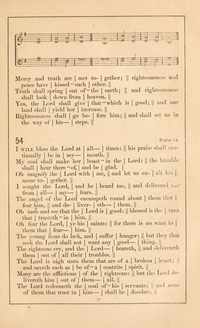 Mercy and truth are | met to- | gether; || righteousness and
peace have | kissed ~each | other. ||
Truth shall spring | out of~the | earth; || and righteousness
shall look | down from | heaven. ||
Yea, the Lord shall give that~which is | good; || and our
land shall | yield her | increase. ||
Righteousness shall | go be- | fore him; || and shall set us in
the way of | his— | steps. ||
54
I WILL bless the Lord at | all— | times: || his praise shall con-
tinually | be in | my— | mouth. ||
My soul shall make her | boast~in the | Lord; || the humble
shall | hear there~of, | and be | glad. ||
Oh magnify the Lord with | me, | and let us ex- | alt his |
name to- | gether. ||
I sought the Lord, | and he | heard me, || and delivered | me
from | all— | my— | fears. ||
The angel of the Lord encampeth round about | them that |
fear him, || and de- | liver- | eth— | them. ||
Oh taste and see that the | Lord is | good; || blessed is the | man
that | trusteth~in | him. ||
Oh fear the Lord, | ye his | saints; || for there is no want to |
them that | fear— | him. ||
The young lions do lack, and | suffer | hunger; || but they that
seek the Lord shall not | want any | good— | thing. ||
The righteous cry, and the | Lord— | heareth, || and delivereth
them | out of | all their | troubles. ||
The Lord is nigh unto them that are of a | broken | heart; ||
and saveth such as | be of~a | contrite | spirit. ||
Many are the afflictions | of the | righteous; || but the Lord de-
livereth him | out of | them— | all. ||
The Lord redeemeth the | soul of~his | servants; || and none
of them that trust in | him— | shall be | desolate. ||